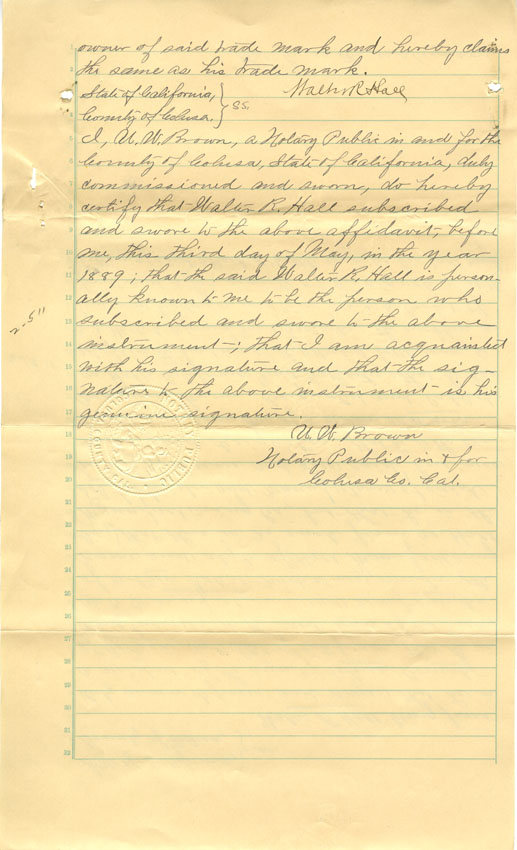 owner of said trade mark and hereby claims
the same as his trade mark.
Walter R. Hall
State of California, }
County of Colusa. } SS.
I, U. W. Brown, a Notary Public in and for the
County of Colusa, State of California, duly
commissioned and sworn, do hereby
certify that Walter R. Hall subscribed
and swore to the above affidavit before
me, this third day of May, in the year
1889; that the said Walter R. Hall is person-
ally known to me to be the person who
subscribed and swore to the above
instrument; that I am acquainted
with his signature and that the sig-
nature to the above instrument is his
genuine signature.
U. W. Brown
Notary Public in & for
Colusa Co. Cal.
2-5"